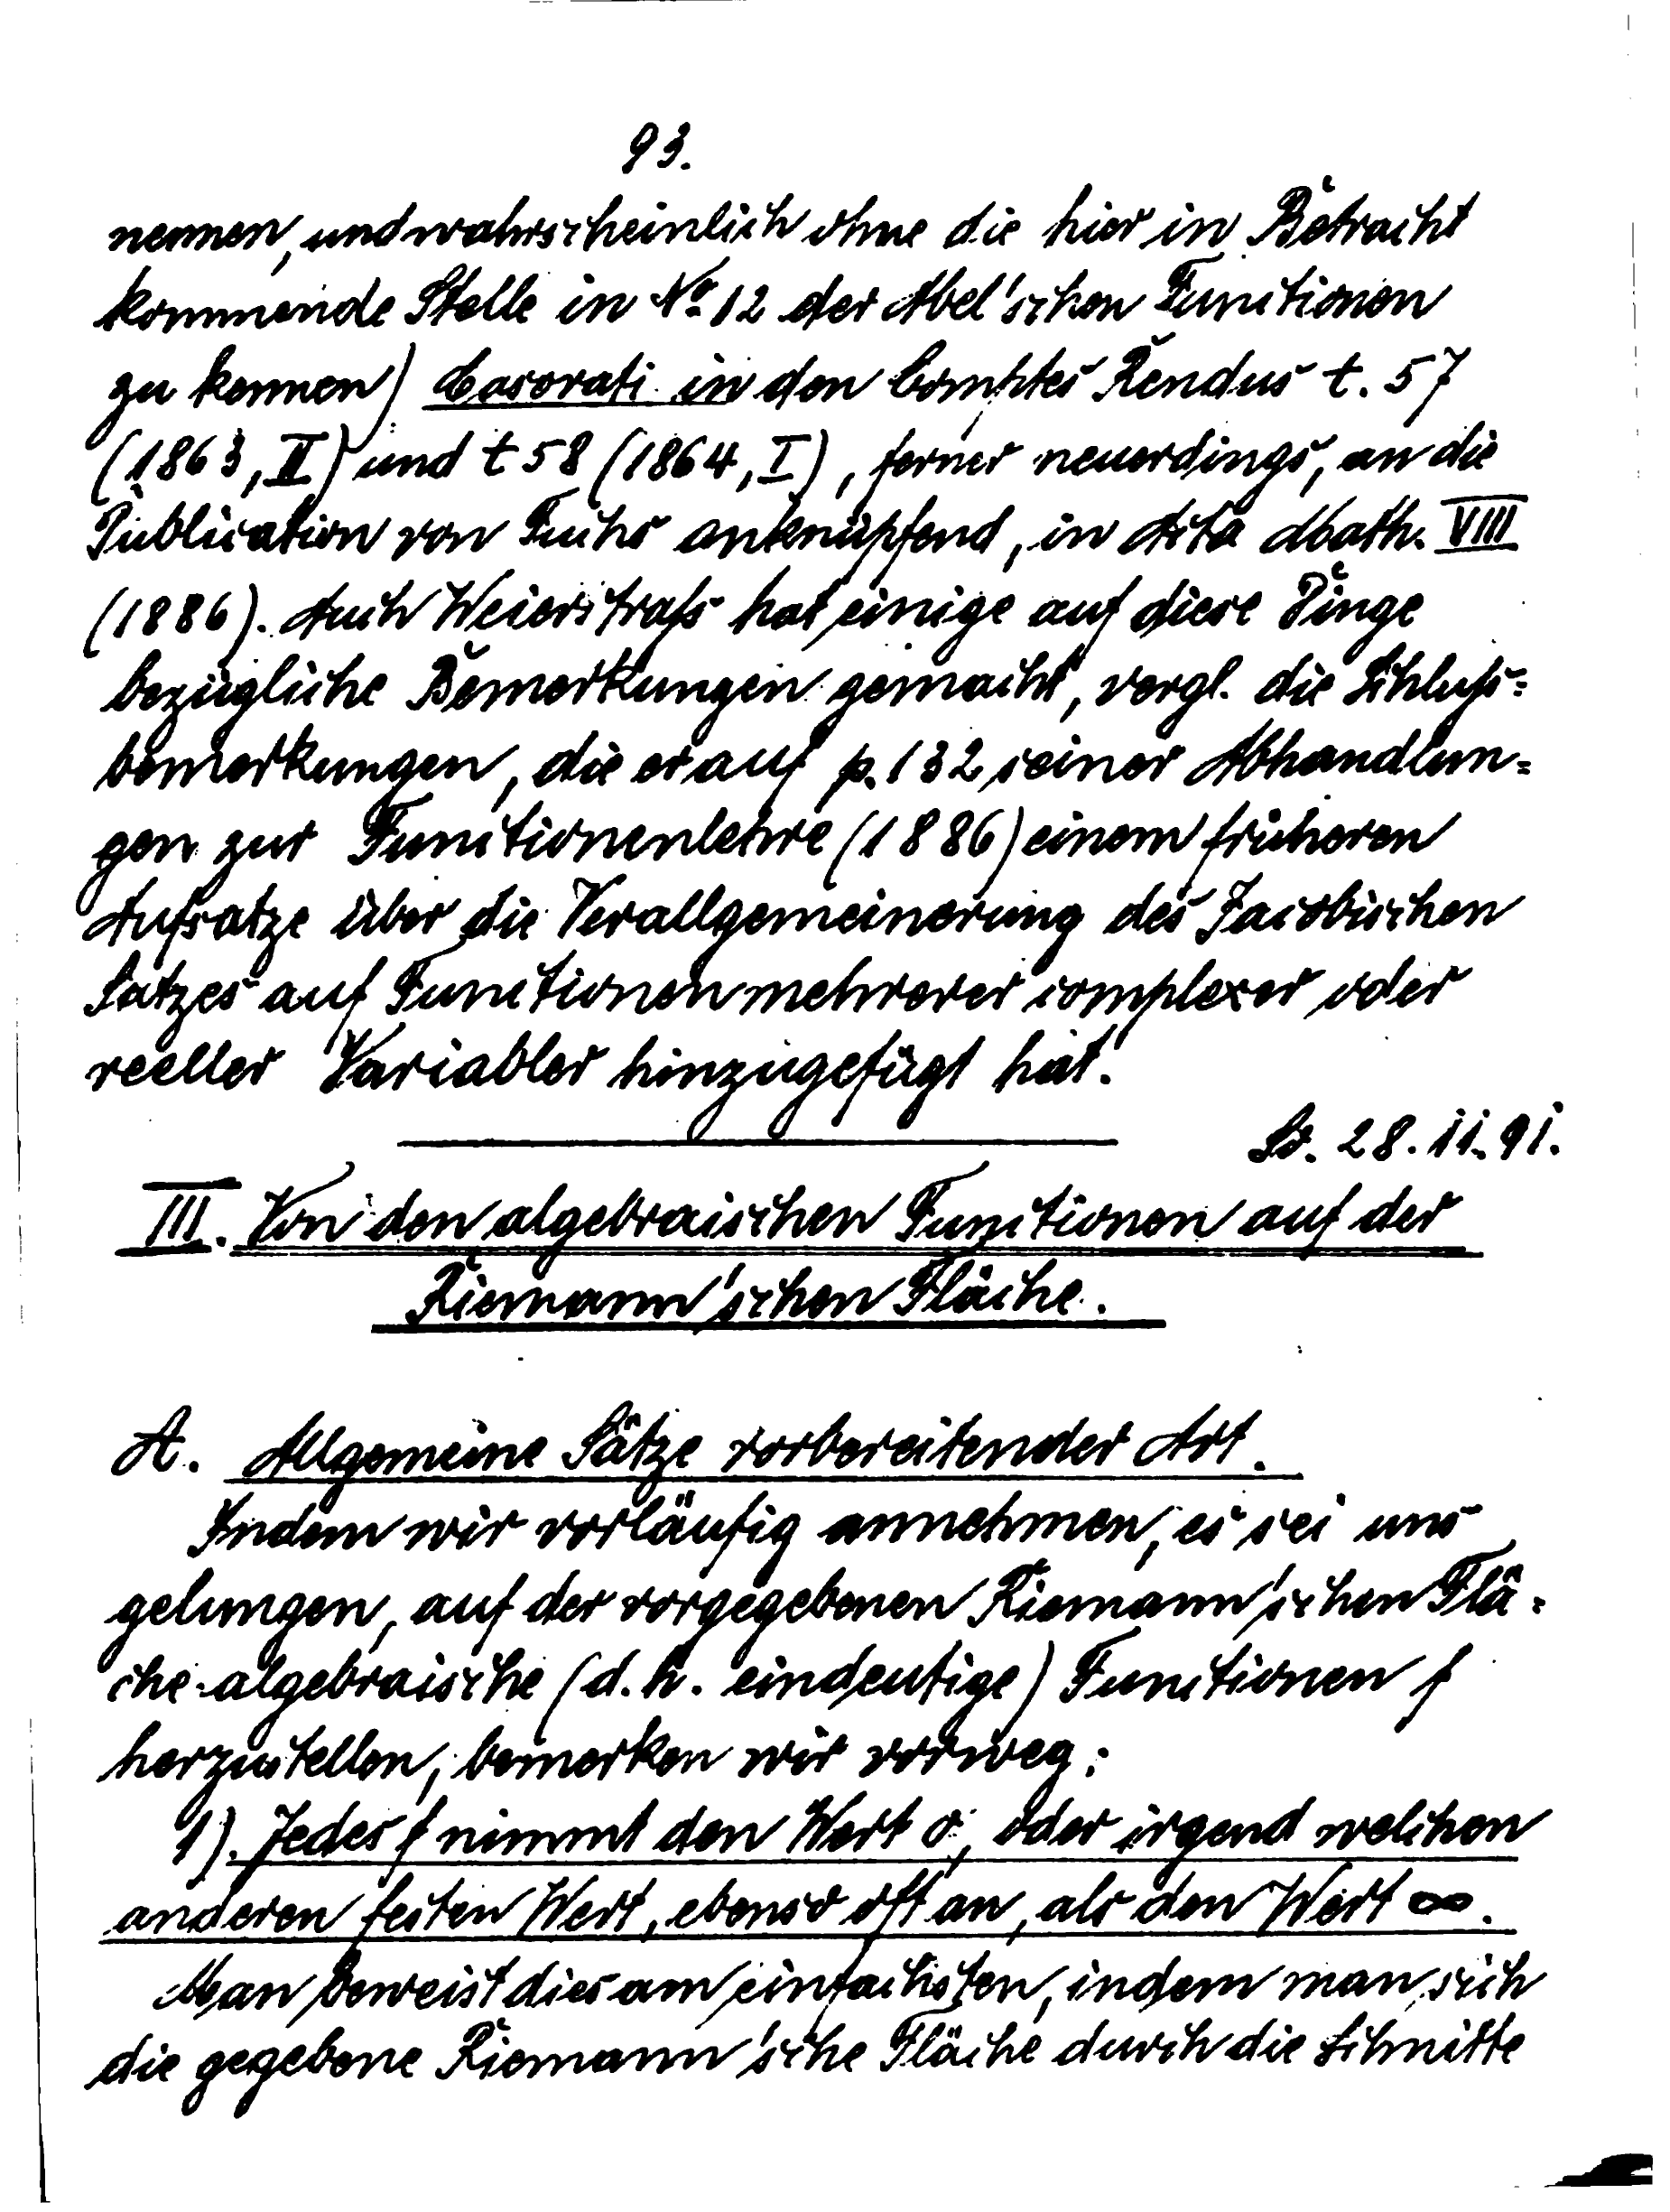 93.
nennen, und wahrscheinlich ohne die hier in Betracht
kommende Stelle in No. 12 der Abel'schen Functionen
zu kennen) Casorati in den Comptes Rendus t. 57
(1863, II) und t 58 (1864, I), ferner neuerdings, an die
Publication von Fuchs anknüpfend, in Acta Math. VIII
(1886). Auch Weierstrass hat einige auf diese Dinge
bezügliche Bemerkungen gemacht, vergl. die Schluss=
bemerkungen, die er auf p. 132 seiner Abhandlun=
gen zur Functionenlehre (1886) einem früheren
Aufsatze über die Verallgemeinerung des Jacobischen
Satzes auf Functionen mehrerer complexer oder
reeller Variabler hinzugefügt hat.
28. 11. 91.
III. Von den algebraischen Functionen auf der
Riemann'schen Fläche.
A. Allgemeine Sätze vorbereitender Art.
Indem wir vorläufig annehmen, es sei uns
gelungen, auf der vorgegebenen Riemann'schen Flä=
che algebraische (d.h. eindeutige) Functionen f
herzustellen, bemerken wir vorweg:
1). Jedes f nimmt den Wert o, oder irgend welchen
anderen festen Wert, ebenso oft an, als den Wert ∞.
Man beweist dies am einfachsten, indem man sich
die gegebene Riemann'sche Fläche durch die Schnitte